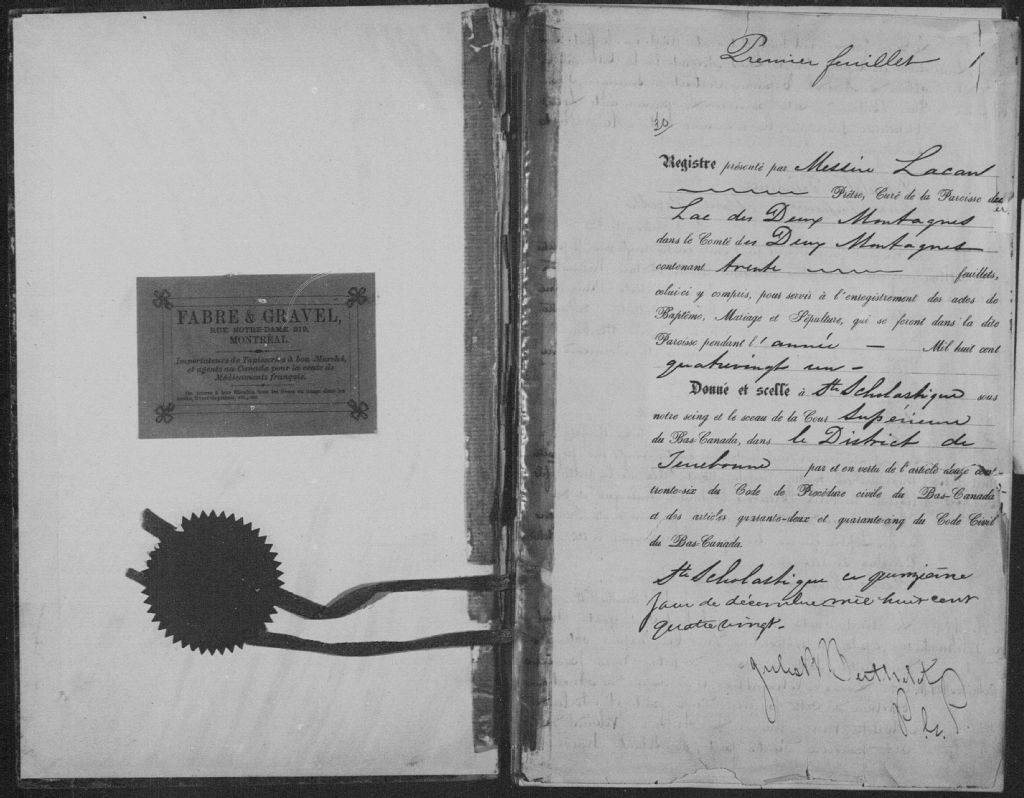 FABRE & GRAVEL,
RUE NOTRE-DAME 219,
MONTREAL.
Importateurs de Tapisseries à bon Marché,
et agents au Canada pour la vente de
Médicaments français.
Premier feuillet 1
30
Registre présenté par Messire Lacan
Prêtre, Curé de la Paroisse
Lac des Deux Montagnes
dans le Comté des Deux Montagnes
contenant trente feuillets,
celui-ci y compris, pour servir à l'enregistrement des actes de
Baptême, Mariage et Sépulture, qui se feront dans la dite
Paroisse pendant l'année — Mil huit cent
quatrevingt un -
Donné et scellé à Ste Scholastique sous
notre seing et le sceau de la Cour Supérieure
du Bas-Canada, dans le District de
Terrebonne par et en vertu de l'article douze cent
trente-six du Code de Procédure civile du Bas-Canada
et des articles quarante-deux et quarante-cinq du Code Civil
du Bas-Canada.
Ste Scholastique ce quinzième
jour de décembre mil huit cent
quatrevingt.
Berthelot